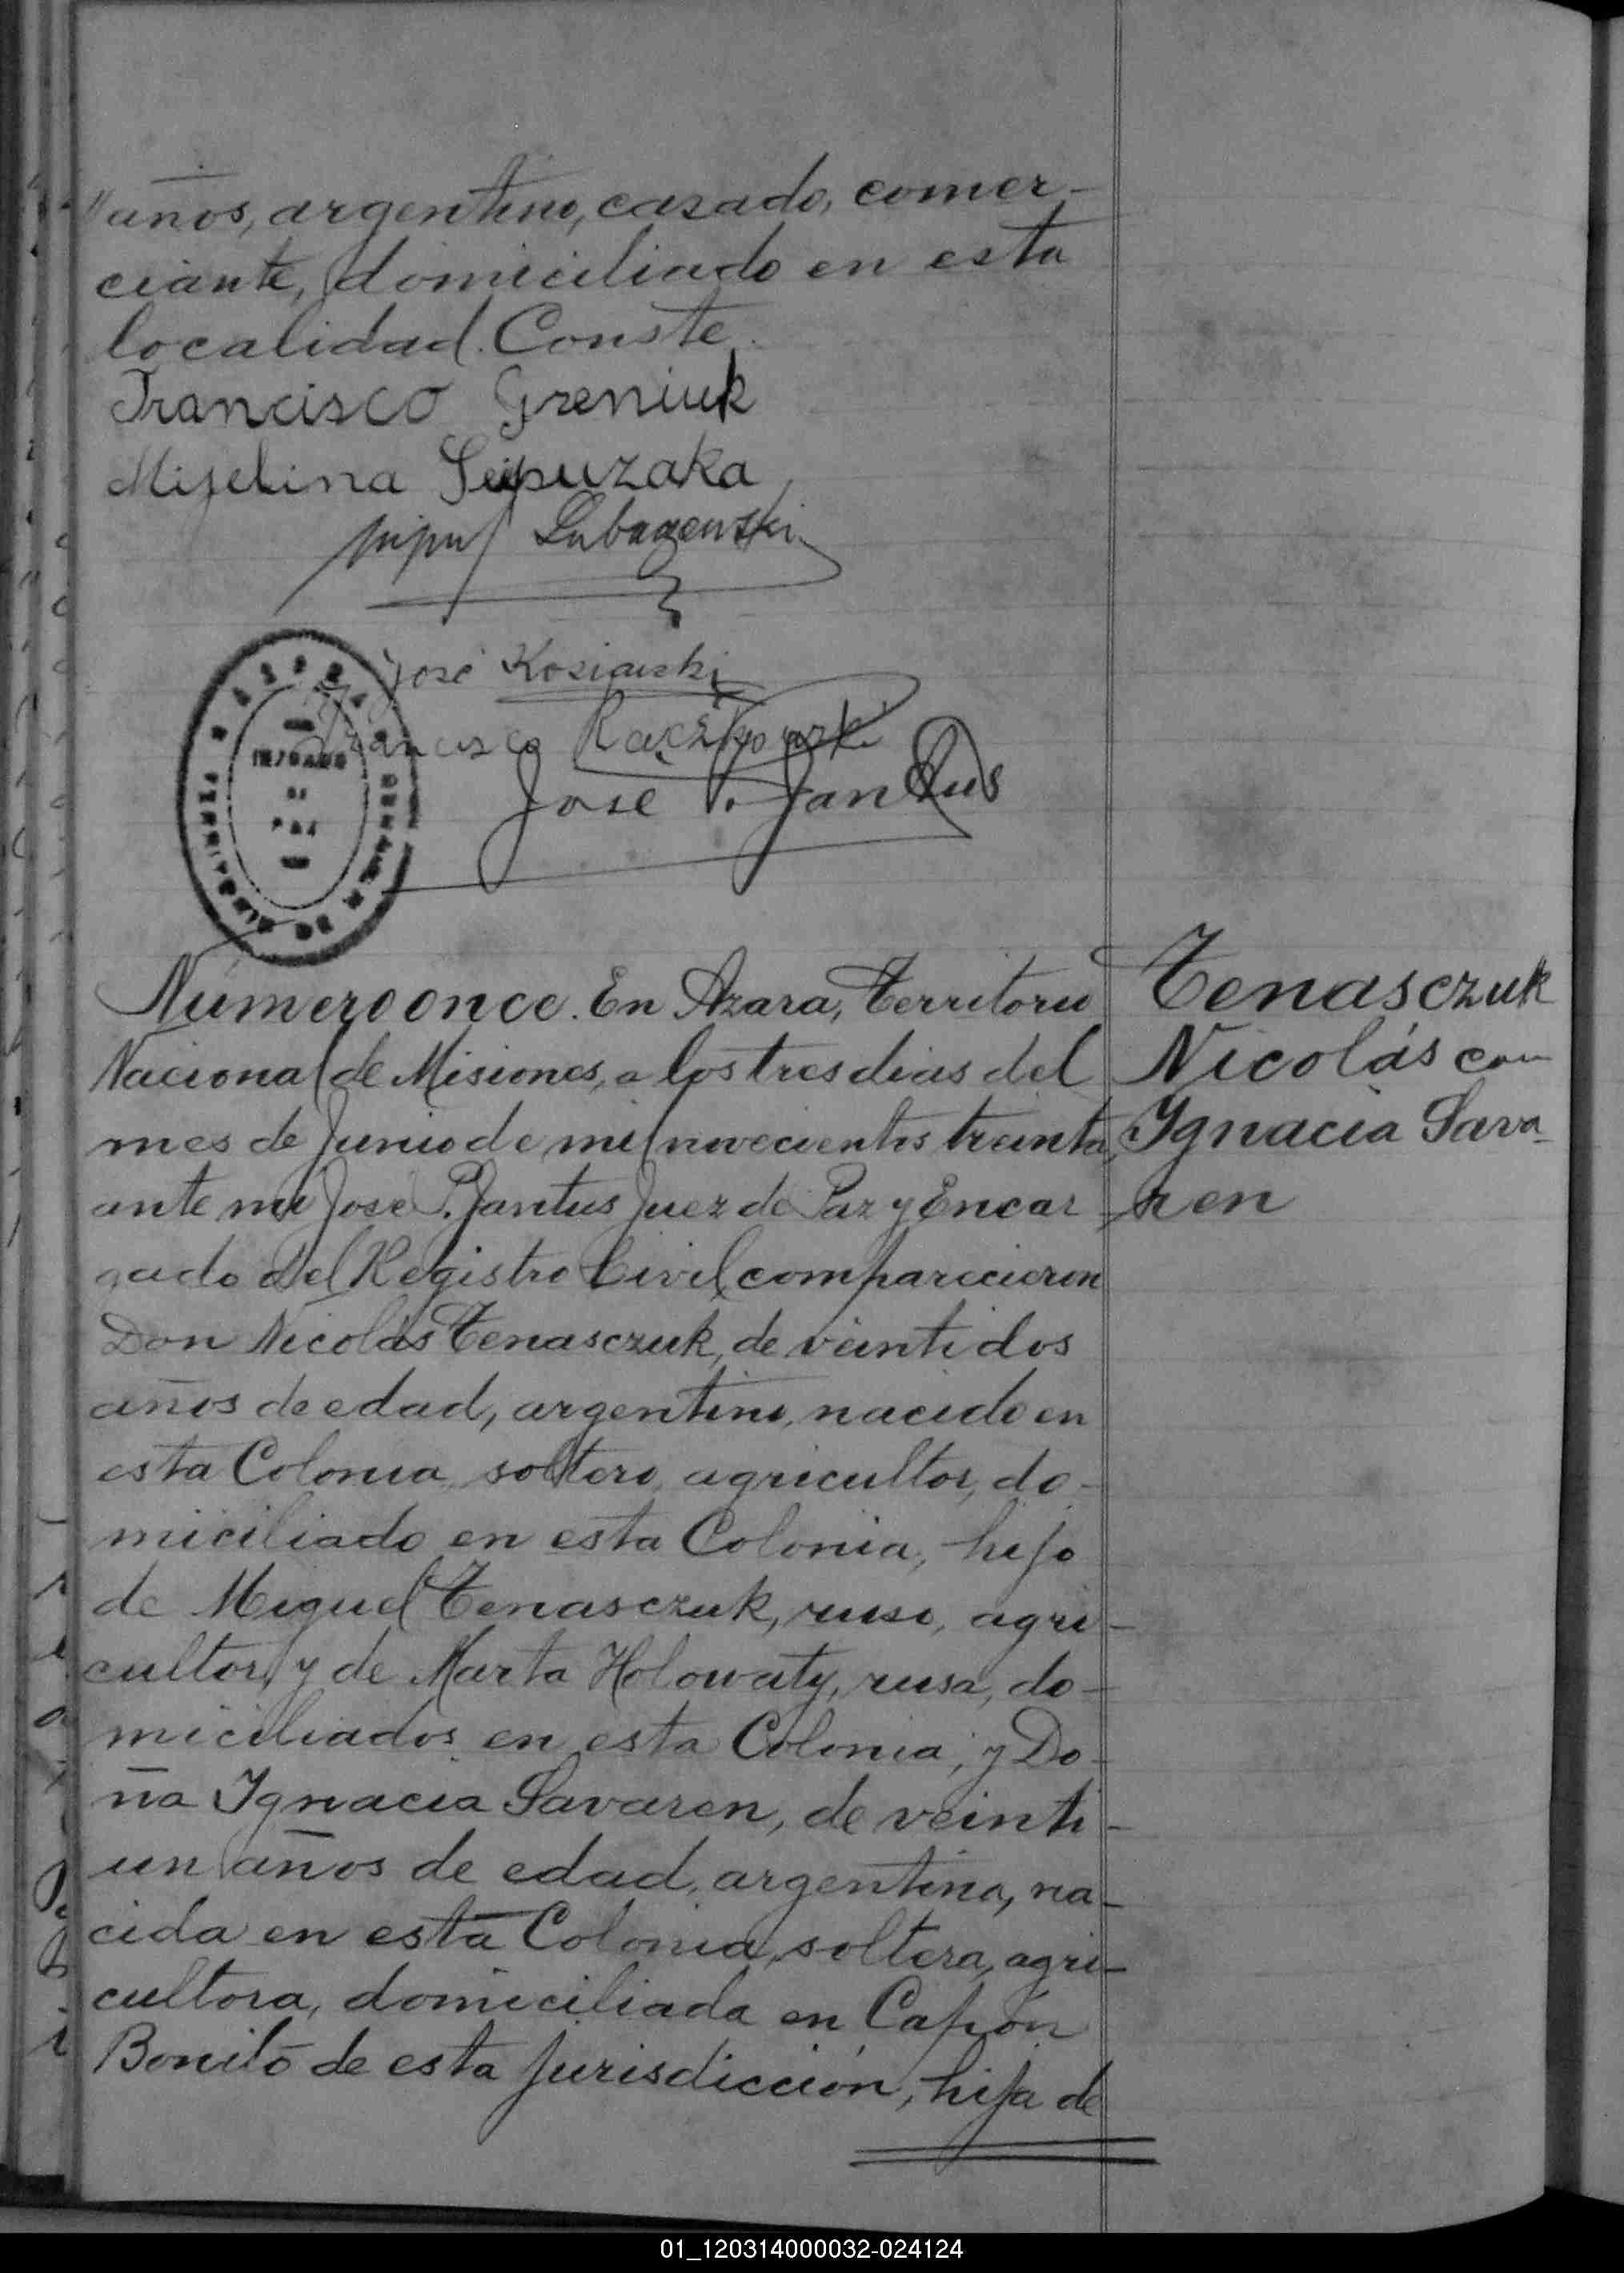 "años, argentino, casado, comer-
ciante, domiciliado en esta
localidad. Conste.
Francisco Greniuk
Mijelina
Lubaczewski
José Kosinski
Francisco
José P. Jantus
JUZGADO
DE
PAZ
Número once. En Azara, Territorio
Nacional de Misiones, a los tres dias del
mes de Junio de mil novecientos treinta,
ante mi José P. Jantus Juez de Paz y Encar
gado del Registro Civil, comparecieron
Don Nicolás Tenasczuk, de veintidos
años de edad, argentino, nacido en
esta Colonia, soltero, agricultor, do-
miciliado en esta Colonia, hijo
de Miguel Tenasczuk, ruso, agri-
cultor, y de Marta Holowaty, rusa, do-
miciliados en esta Colonia; y Do-
ña Ignacia Savaren, de veinti-
un años de edad, argentina, na-
cida en esta Colonia, soltera, agri-
cultora, domiciliada en Capón
Bonito de esta Jurisdicción, hija de
Tenasczuk
Nicolás con
Ignacia Sava-
ren
01_120314000032-024124